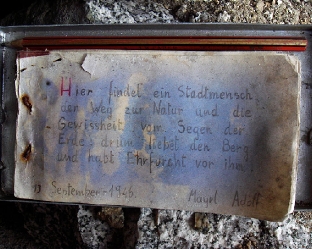 Hier findet ein Stadtmensch
den Weg zur Natur und die
Gewissheit vom Segen der
Erde: drum liebet den Berg
und habt Ehrfurcht vor ihm!
September 1946
Mayrl Adolf